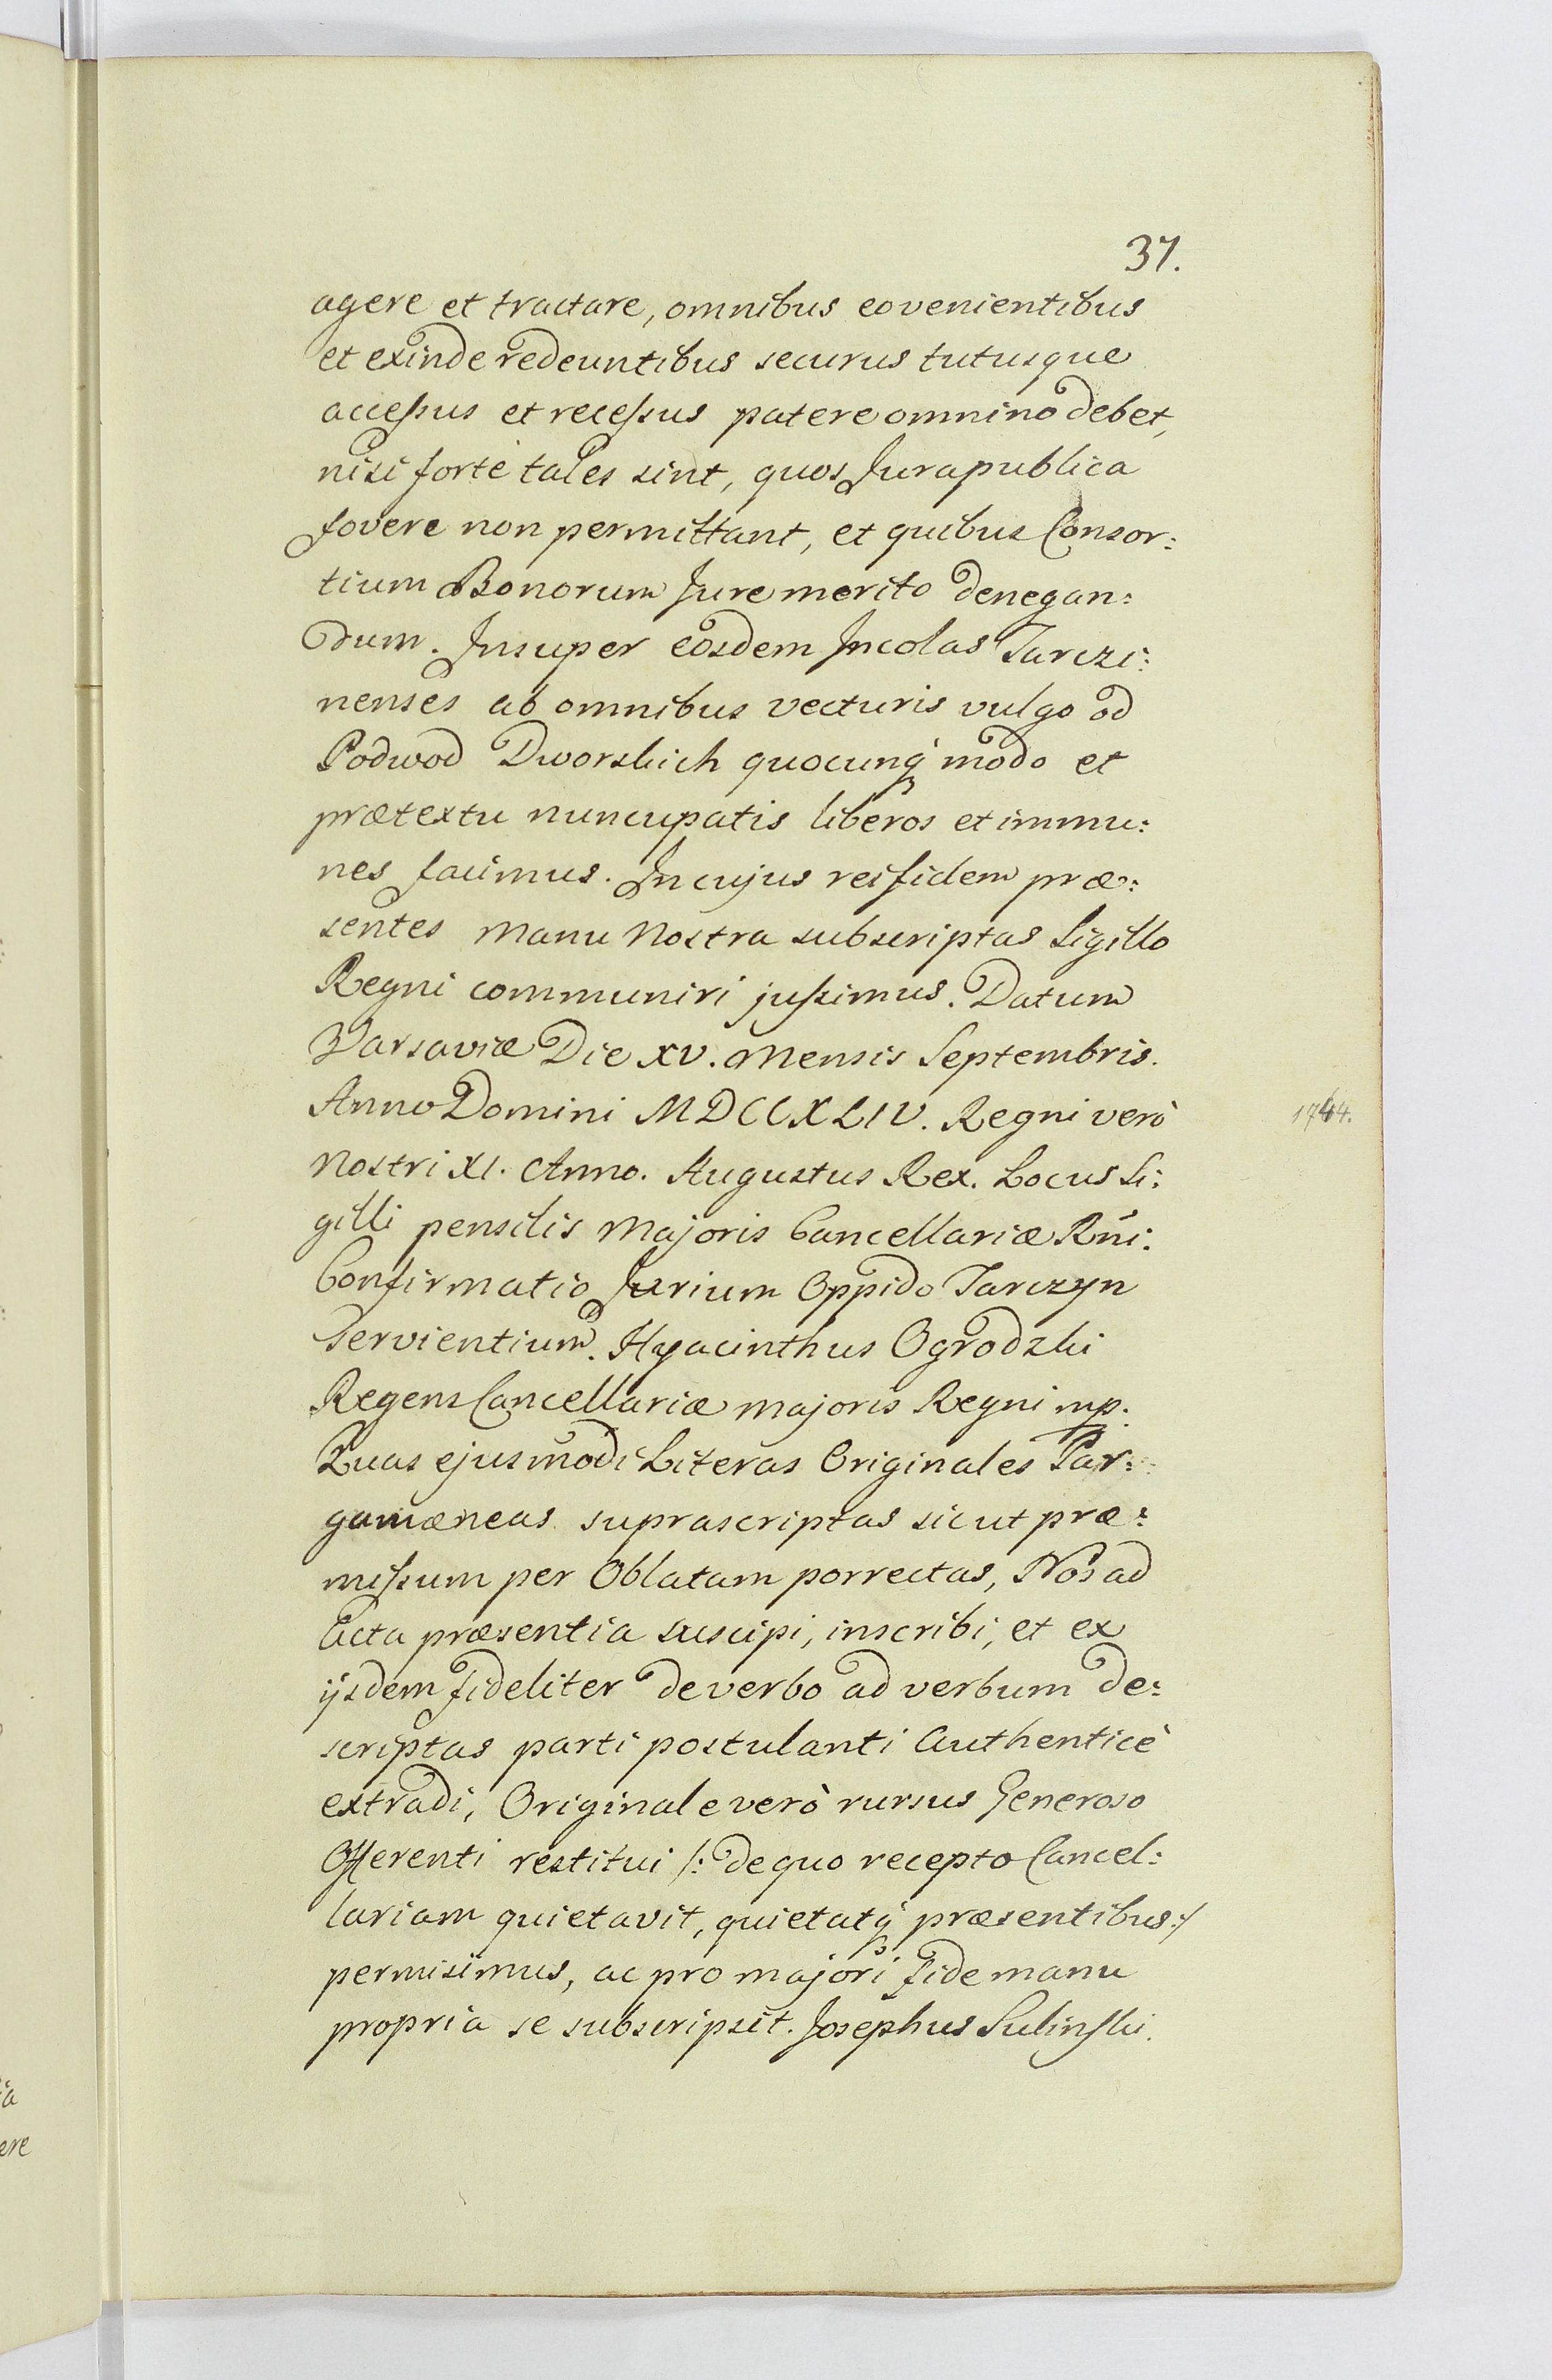 37.
agere et tractare, omnibus eo venientibus
et exinde redeuntibus securus tutusque
accessus et recessus patere omnino debet,
nisi forte tales sint, quos Jura publica
fovere non permittant, et quibus Consor:
tium Bonorum Jure merito denegan:
dum. Insuper eosdem Incolas Tarczi:
nenses ab omnibus vecturis vulgo od
Podwod Dworskich quocunq; modo et
prætextu nuncupatis liberos et immu:
nes facimus. In cujus rei fidem præ:
sentes manu Nostra subscriptas Sigillo
Regni communiri jussimus. Datum
Varsaviæ Die XV. Mensis Septembris.
Anno Domini MDCCXLIV. Regni verò
1744.
Nostri XI. Anno. Augustus Rex. Locus Si:
gilli pensilis Majoris Cancellariæ Rñi.
Confirmatio Jurium Oppido Tarczyn
Servientium. Hyacinthus Ogrodzki
Regens Cancellariæ majoris Regni mp.
Quas ejusmodi Literas Originales Par:
gamæneas suprascriptas sicut præ:
missum per Oblatam porrectas, Nos ad
Acta præsentia suscipi, inscribi, et ex
ijsdem fideliter de verbo ad verbum de:
scriptas parti postulanti Authenticè
extradi, Originale verò rursus Generoso
Offerenti restitui /: de quo recepto Cancel:
lariam quietavit, quietatq; præsentibus :/
permisimus, ac pro majori fide manu
propria se subscripsit. Josephus Sulinski.
ia
ere